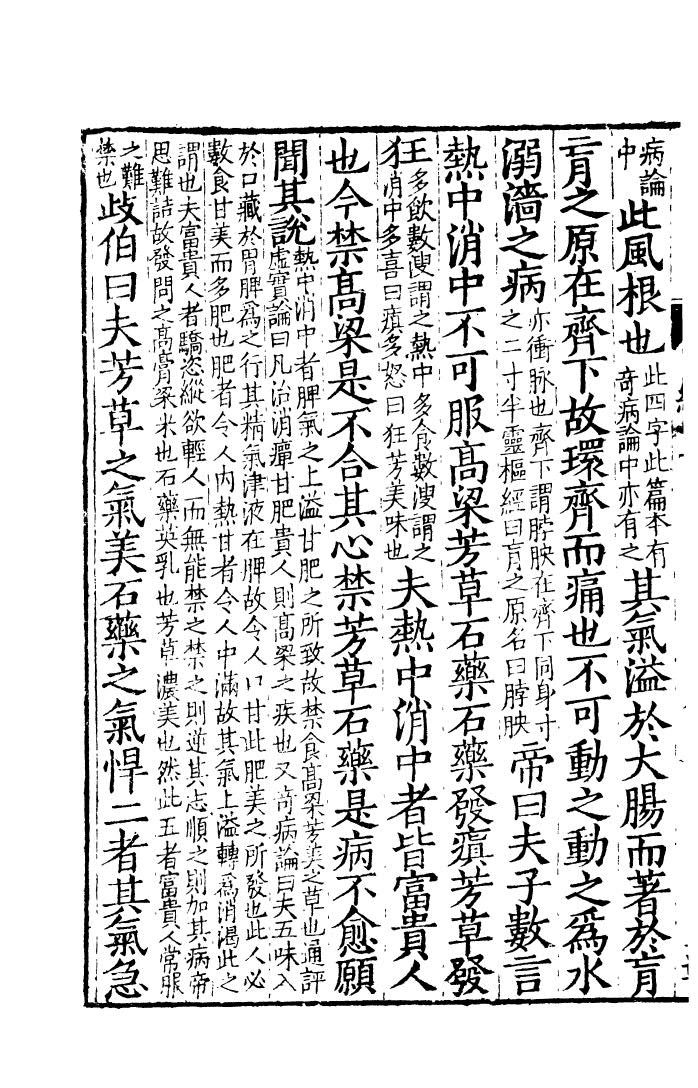 病論中此風根也此四字此篇本有奇病論中亦有之其氣溢於大腸而著於肓
肓之原在齊下故環齊而痛也不可動之動之爲水
溺濇之病亦衝脉也齊下謂脖胦在齊下同身寸之二寸半靈樞經曰肓之原名曰脖胦帝曰夫子數言
熱中消中不可服髙梁芳草石藥石藥發瘨芳草發
狂多飲數溲謂之熱中多食數溲謂之消中多喜曰瘨多怒曰狂芳美味也夫熱中消中者皆富貴人
也今禁髙梁是不合其心禁芳草石藥是病不愈願
聞其說熱中消中者脾氣之上溢甘肥之所致故禁食髙梁芳美之草也通評虛實論曰凡治消癉甘肥貴人則髙梁之疾也又奇病論曰夫五味入
於口藏於胃脾爲之行其精氣津液在脾故令人口甘此肥美之所發也此人必數食甘美而多肥也肥者令人内熱甘者令人中滿故其氣上溢轉爲消渴此之
謂也夫富貴人者驕恣縱欲輕人而無能禁之禁之則逆其志順之則加其病帝思難詰故發問之髙膏梁米也石藥英乳也芳草濃美也然此五者富貴人常服
之難禁也歧伯曰夫芳草之氣美石藥之氣悍二者其氣急